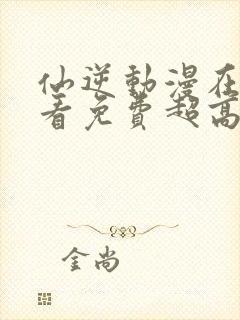 仙逆動漫在
看免費超高
金尚